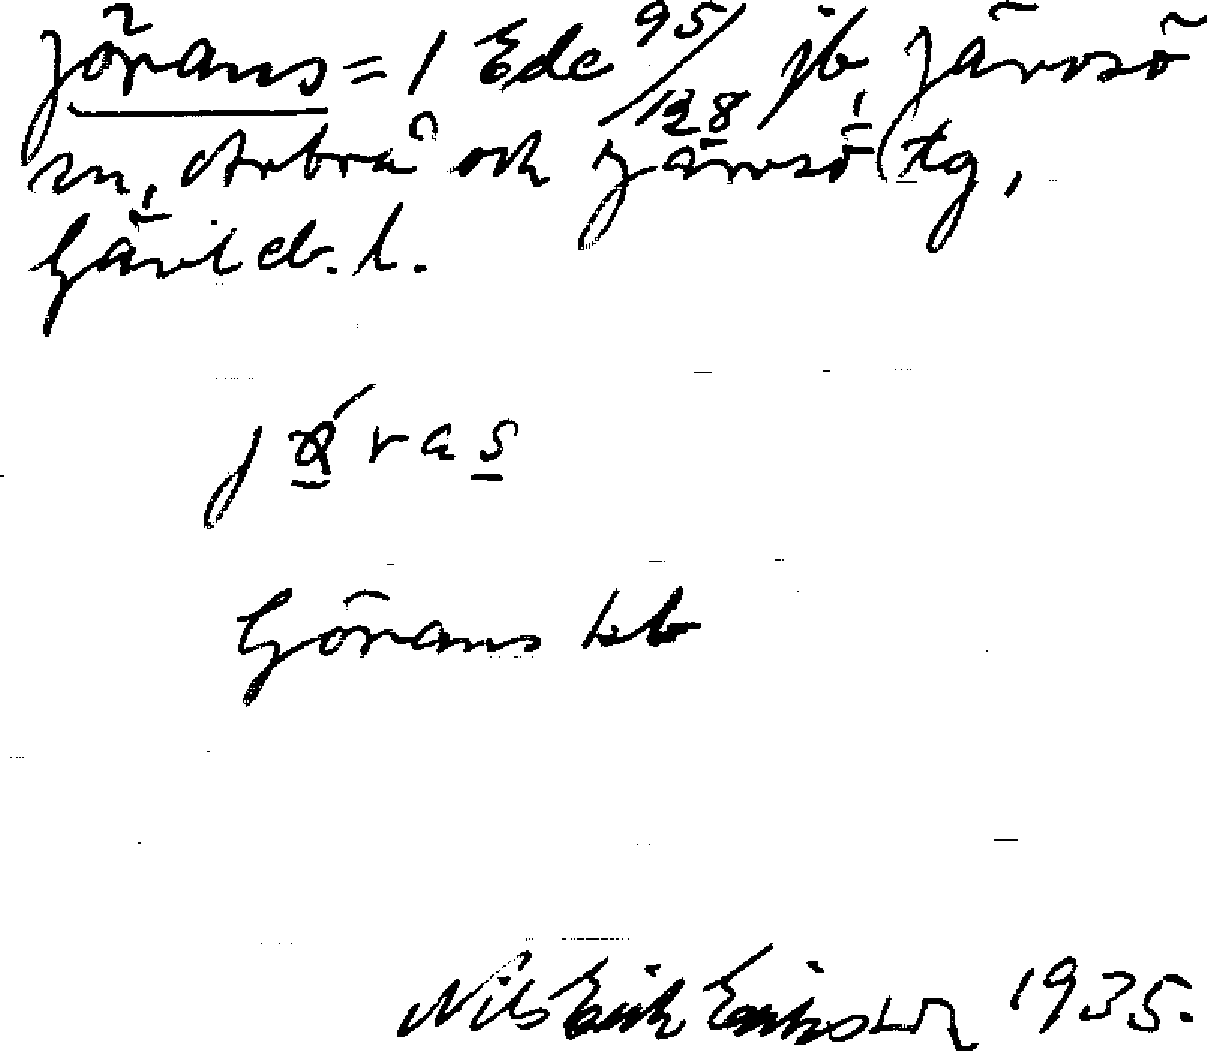 Jörans = 1 Ede 95/128 jb, Järvsö
sn, Arbrå och Järvsö tg,
Gävleb. l.
Görans kb
Nils Erik Eriksson 1935.